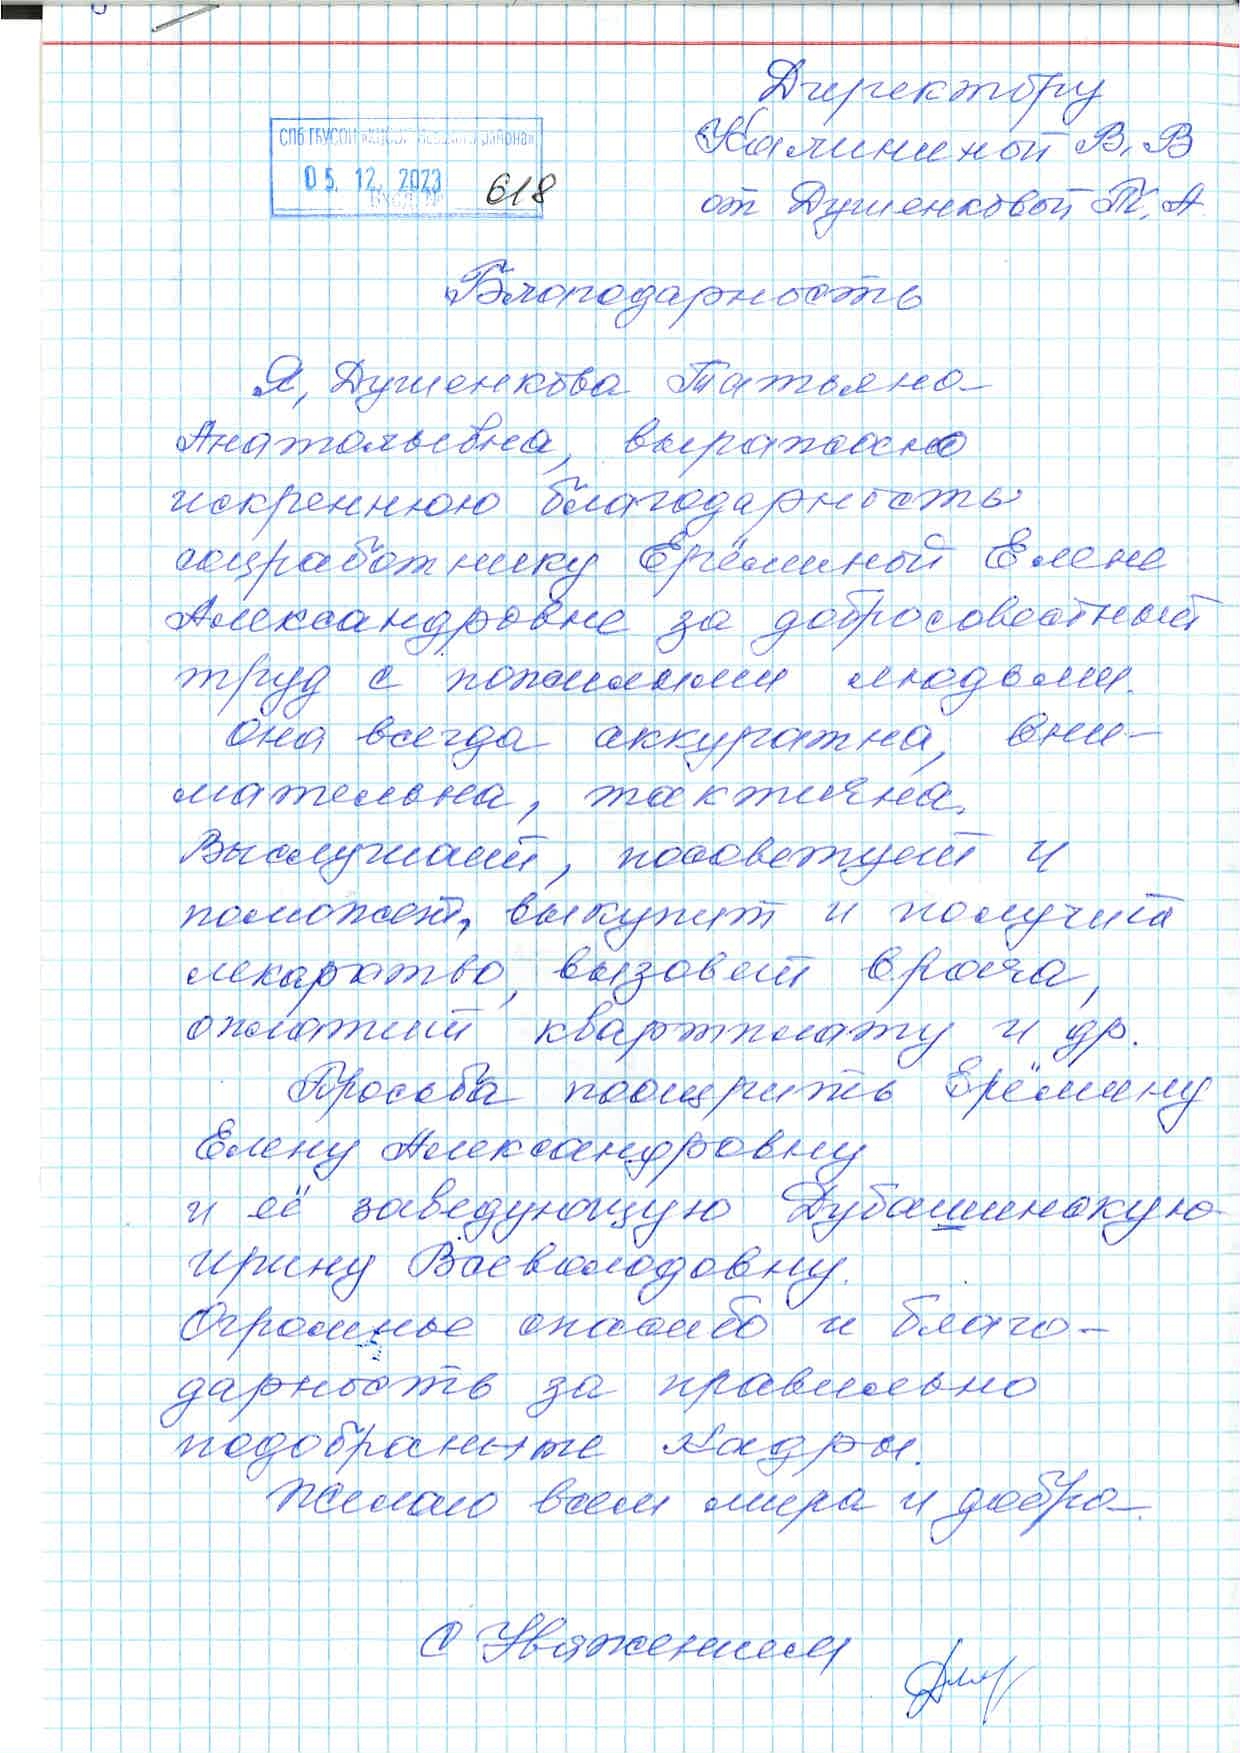 Директору
Калининой В. В
от Душенковой Т. А
СПб ГБУСОН района»
05. 12. 2023
618
Благодарность
Я, Душенкова Татьяна
Анатольевна, выражаю
искреннюю благодарность
соцработнику Ерёминой Елене
Александровне за добросовестный
труд с пожилыми людьми.
Она всегда аккуратна, вни-
мательна, тактична.
Выслушает, посоветует и
поможет, выкупит и получит
лекарство, вызовет врача,
оплатит квартплату и др.
Просьба поощрить Ерёмину
Елену Александровну
и её заведующую Дубашинскую
Ирину Всеволодовну.
Огромные спасибо и благо-
дарность за правильно
подобранные кадры.
Желаю всем мира и добра.
С Уважением